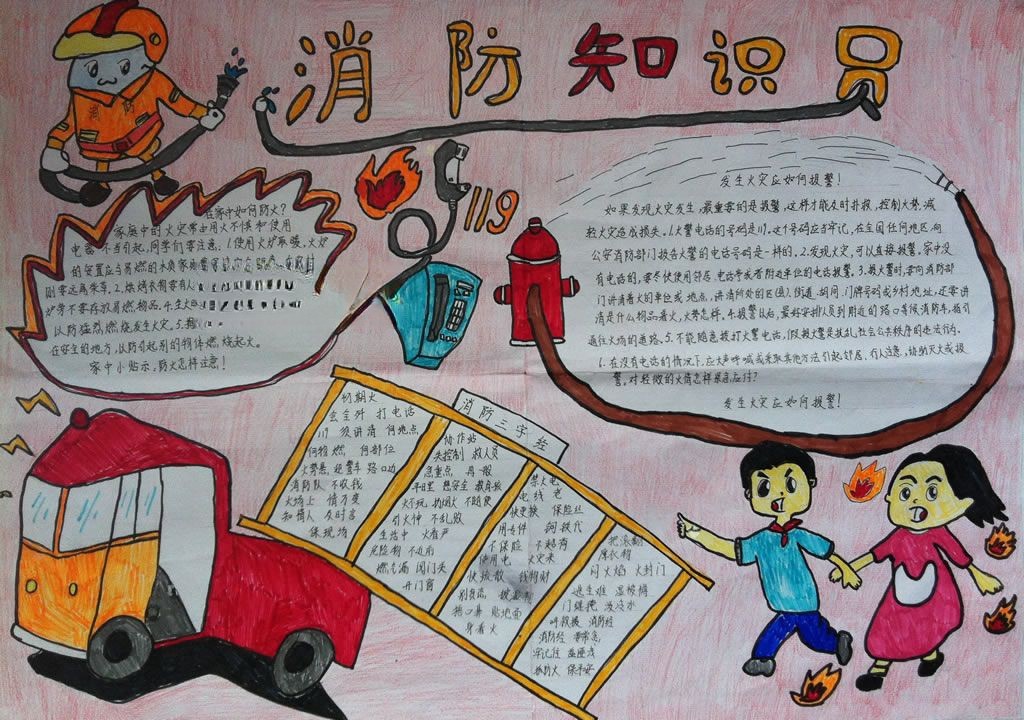 消防知识员
消防
119
在家中如何防火？
家庭中的火灾常由用火不慎和使用
电器不当引起，同学们要注意：1.使用火炉取暖，火炉
的安置应与易燃的木质家具
刚要远离柴草。2.烘烤衣物要有人
炉旁不要存放易燃物品。4.生火
以防猛烈燃烧发生火灾。5.
在安全的地方，以防引起别的物体燃烧起火。
家中小贴示，防火怎样注意！
发生火灾应如何报警！
如果发现火灾发生，最重要的是报警，这样才能及时扑救，控制火势，减
轻火灾造成损失。1.火警电话的号码是119。这个号码应当牢记，在全国任何地区，向
公安消防部门报告火警的电话号码是一样的。2.发现火灾，可以直接报警。家中没
有电话的，要尽快使用邻居、电话亭或者附近单位的电话报警。3.报火警时，要向消防部
门讲清着火的单位或地点，讲清所处的区(县)、街道、胡同、门牌号码或乡村地址，还要讲
清是什么物品着火，火势怎样。4.报警以后，最好安排人员到附近的路口等候消防车，指引
通往火场的道路。5.不能随意拨打火警电话，假报火警是扰乱社会公共秩序的违法行为。
6.在没有电话的情况下，应大声呼喊或采取其他方法引起邻居、行人注意，协助灭火或报
警。对轻微的火情怎样紧急应付？
发生火灾应如何报警！
消防三字经
初期火
玄全外 打电话
119 须讲清 何地点
何物燃 何部位
火势急 迎警车 路口动
消防队 不收钱
火场上 情万变
知情人 及时言
保现场
协作站
失控制 救人员
急重点 再一般
平日里 想安全 教育孩
火行玩 切烟火 不随便
引火种 不乱放
生活中 火看严
危险物 不近前
燃气漏 闭门关
开门窗
禁火电
电线 老
快更换 保险丝
用专件 铜铁代
不保险 不超荷
使用电 火灾来
快疏散 钱物财
别贪恋
捂口鼻 贴地面
身着火
把滚翻
厚衣物
闷火焰 火封门
逃生难 温被褥
门缝掩 泼冷水
呼救援 消防经
消防经 常常念
牢记住
防火 保平安